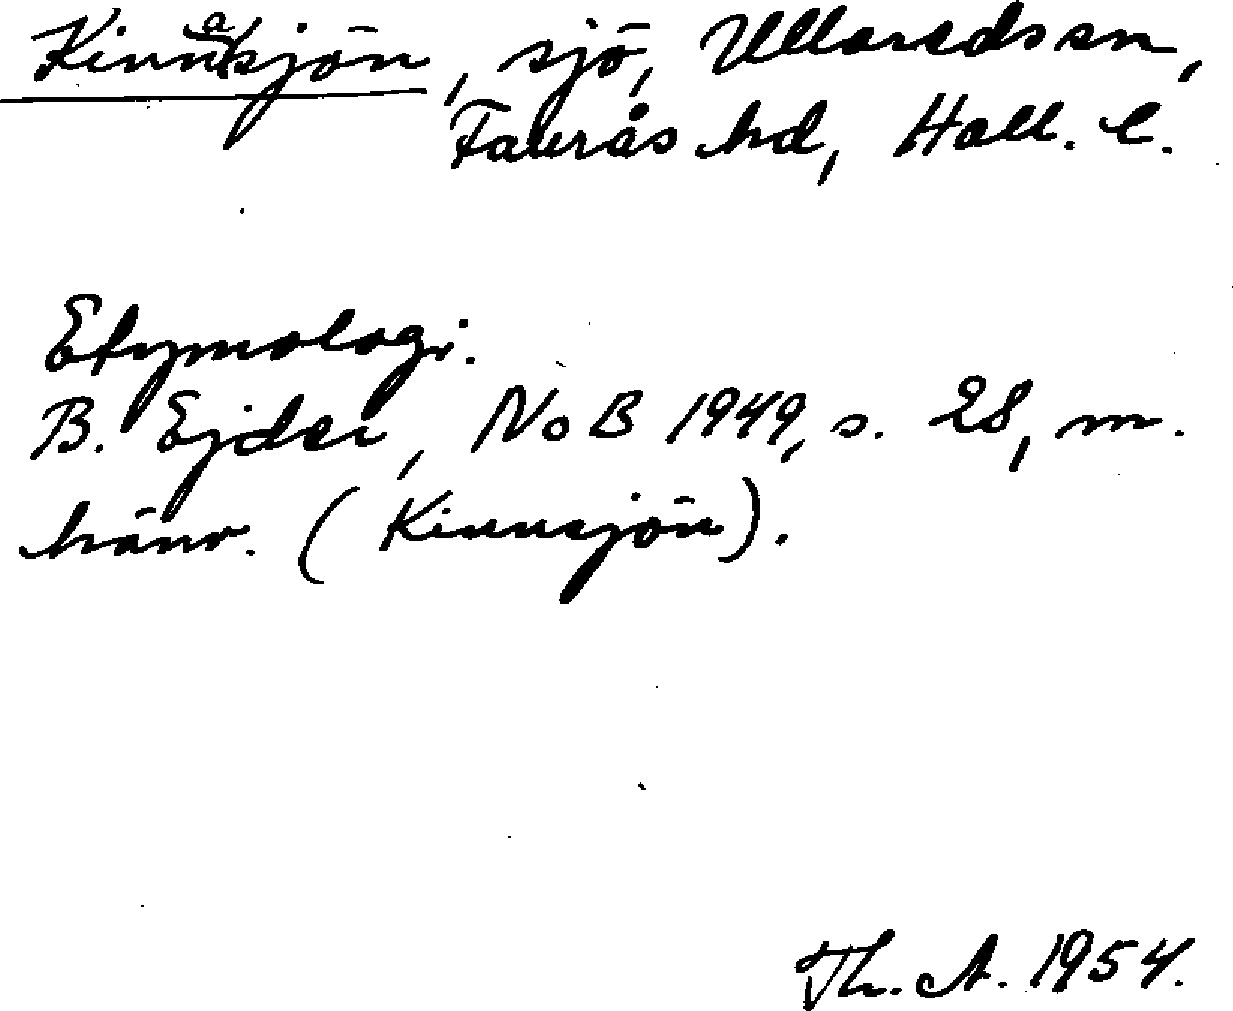 Kinnasjön, sjö, Ullareds sn,
Faurås hd, Hall. l.
Etymologi.
B. Ejder, NoB 1949, s. 28, m.
hänv. (Kinnsjön).
Th. A. 1954.